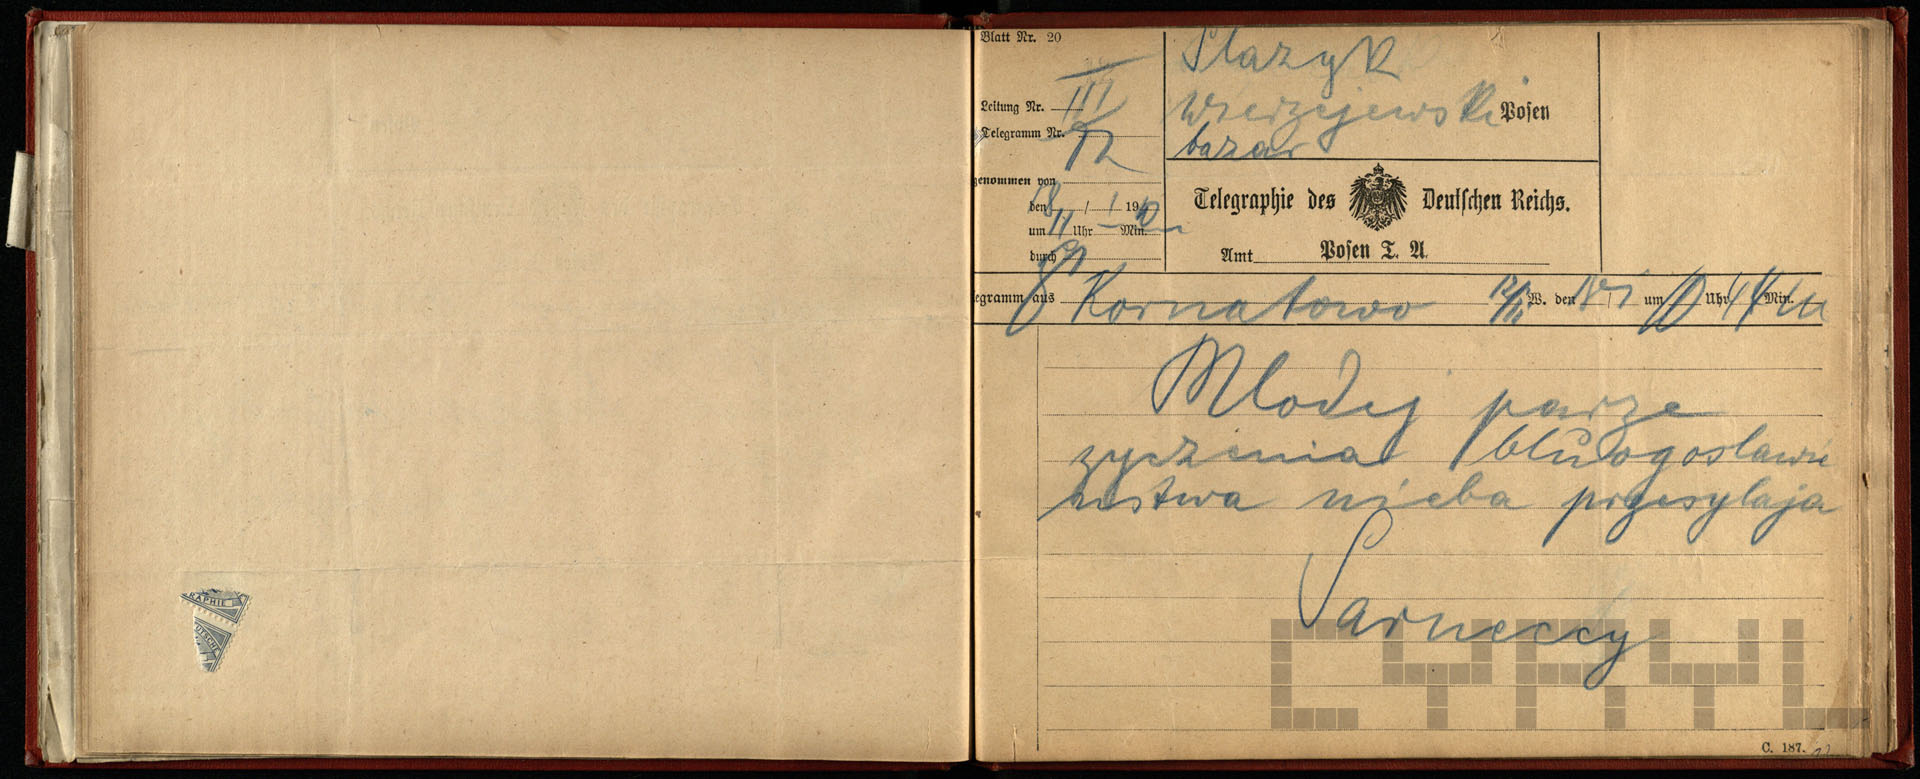 Blatt Nr. 20
Leitung Nr. III
Telegramm Nr. 92
genommen von
den / 1 19 10
um 11 Uhr Min.
durch
Stazyk
Wierzejewski Posen
bazar
Telegraphie des Deutschen Reichs.
Amt Posen T. A.
egramm aus Kornatowo W. den um 10 Uhr 44 Min.
Mlodej parze
zyczenia blogoslawie
nstwa nieba przesylaja
Sarneccy
RAPHIE
UTSCHE
C. 187.
CYRYL